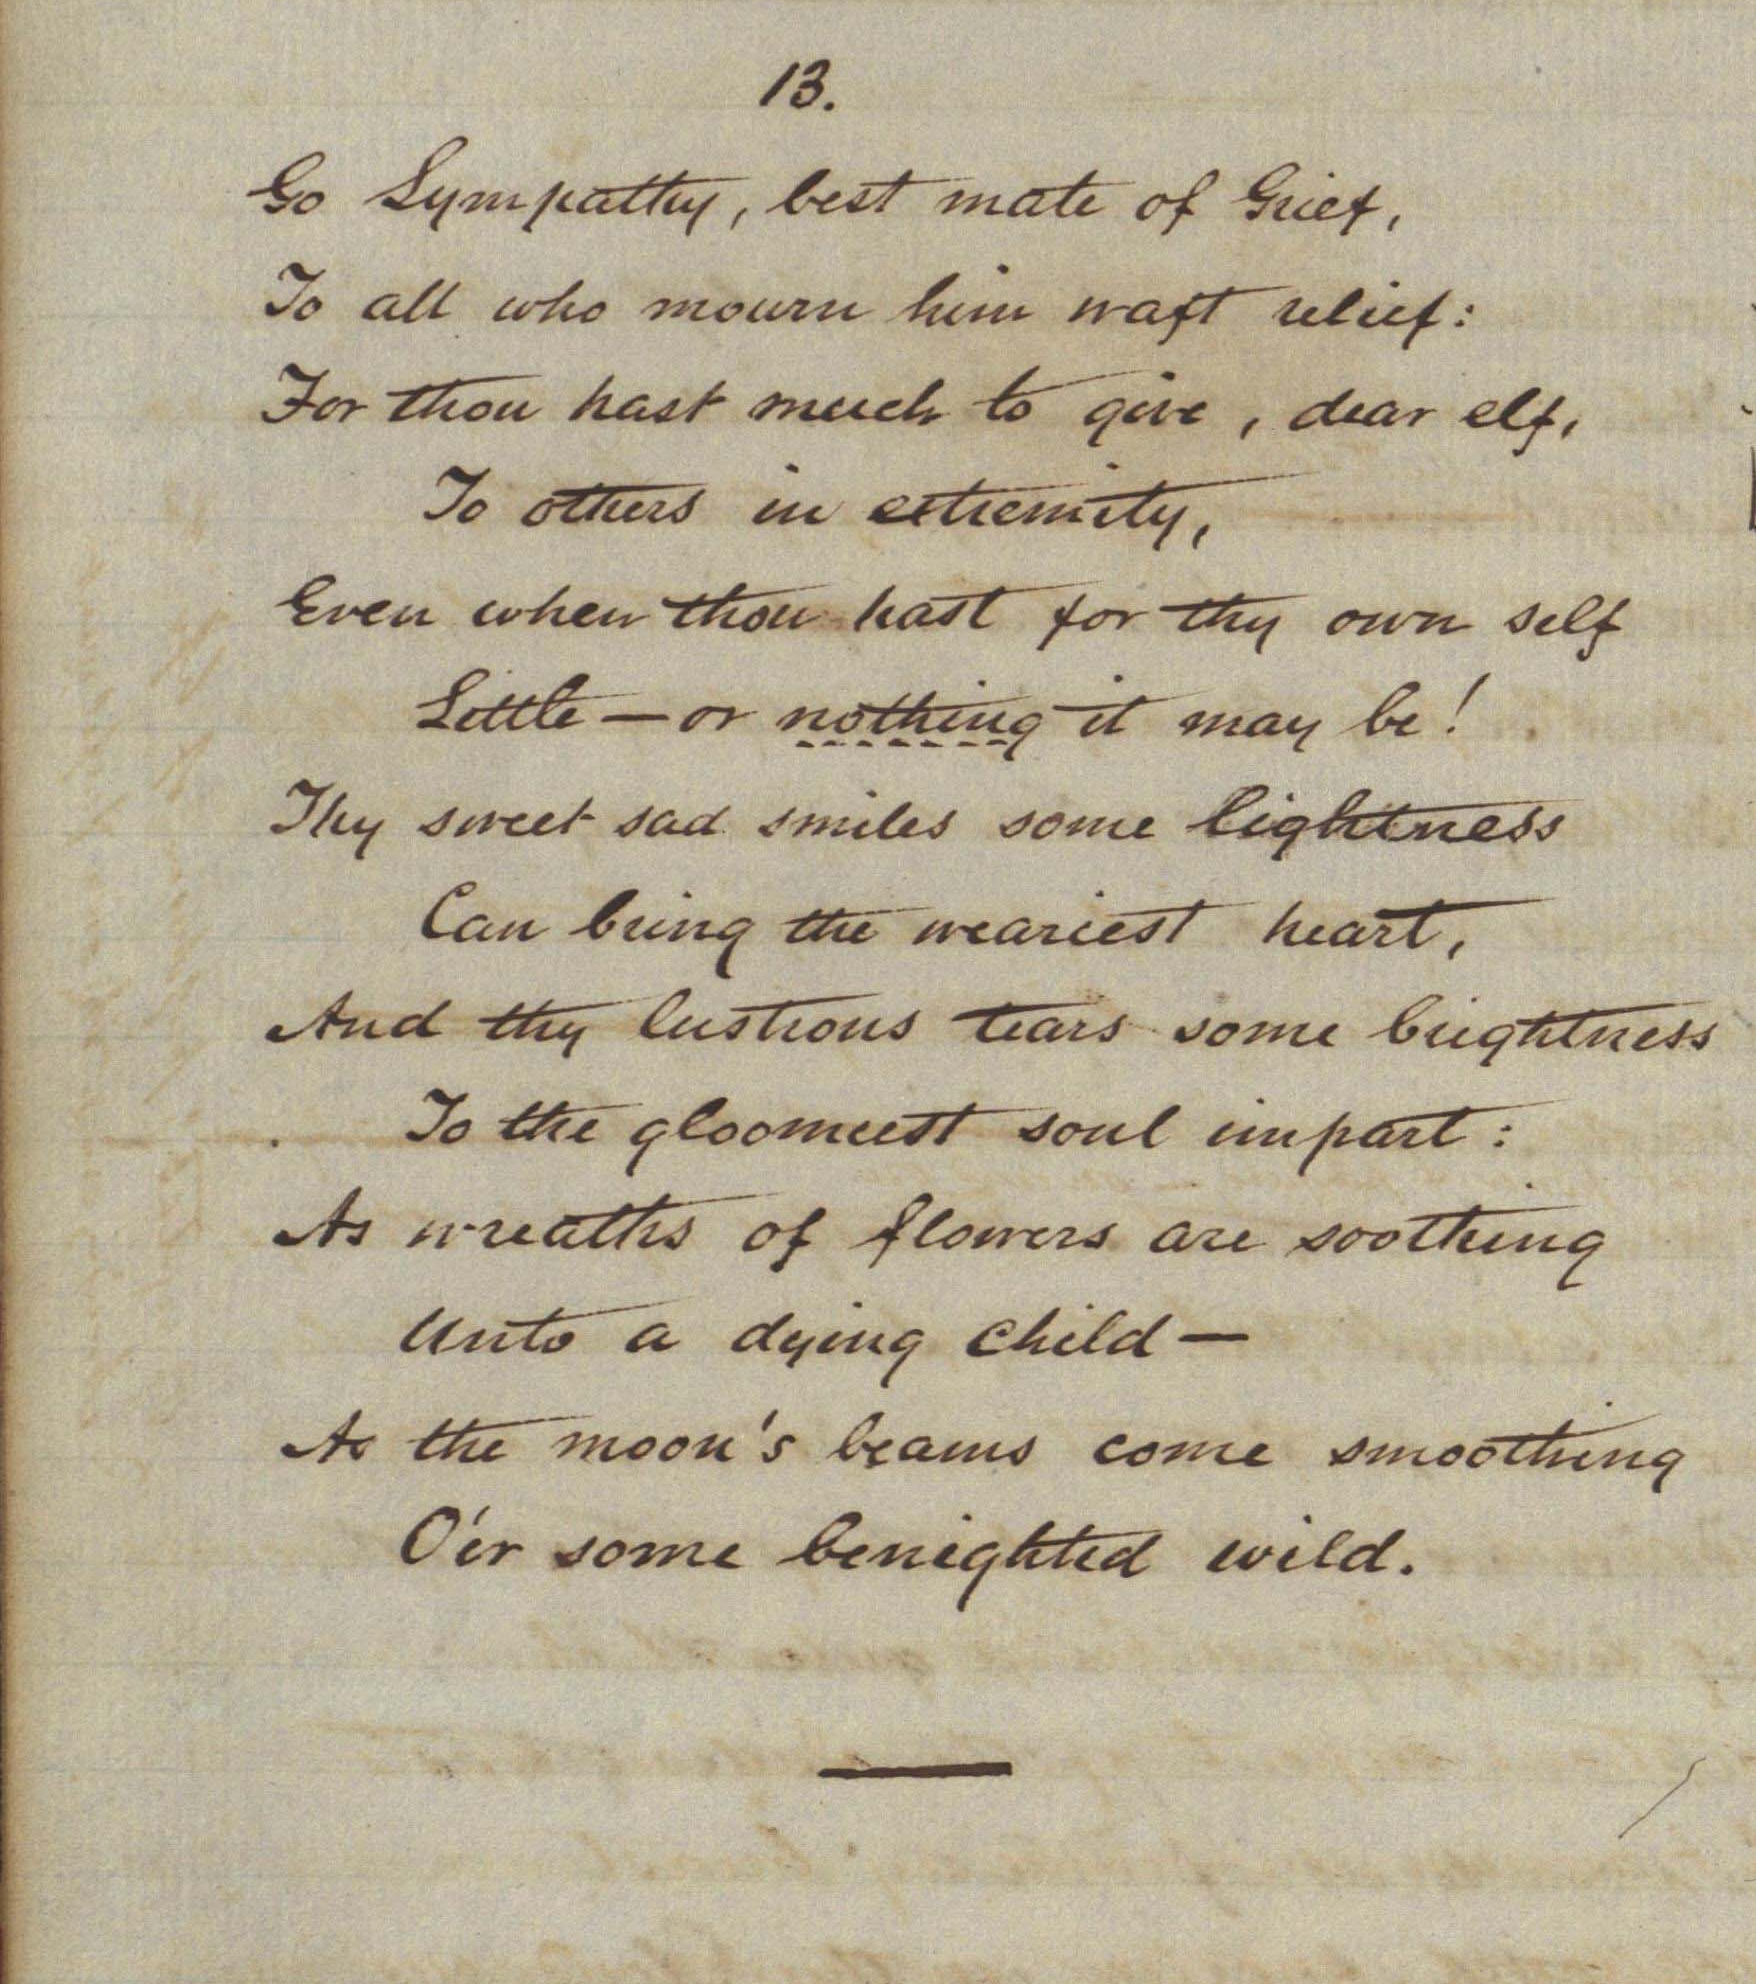 13.
Go Sympathy, best mate of Grief,
To all who mourn him waft relief:
For thou hast much to give, dear elf,
To others in extremity,
Even when thou hast for thy own self
Little — or nothing it may be!
Thy sweet sad smiles some lightness
Can bring the weariest heart,
And thy lustrous tears some brightness
To the gloomiest soul impart:
As wreaths of flowers are soothing
Unto a dying child —
As the moon's beams come smoothing
O'er some benighted wild.